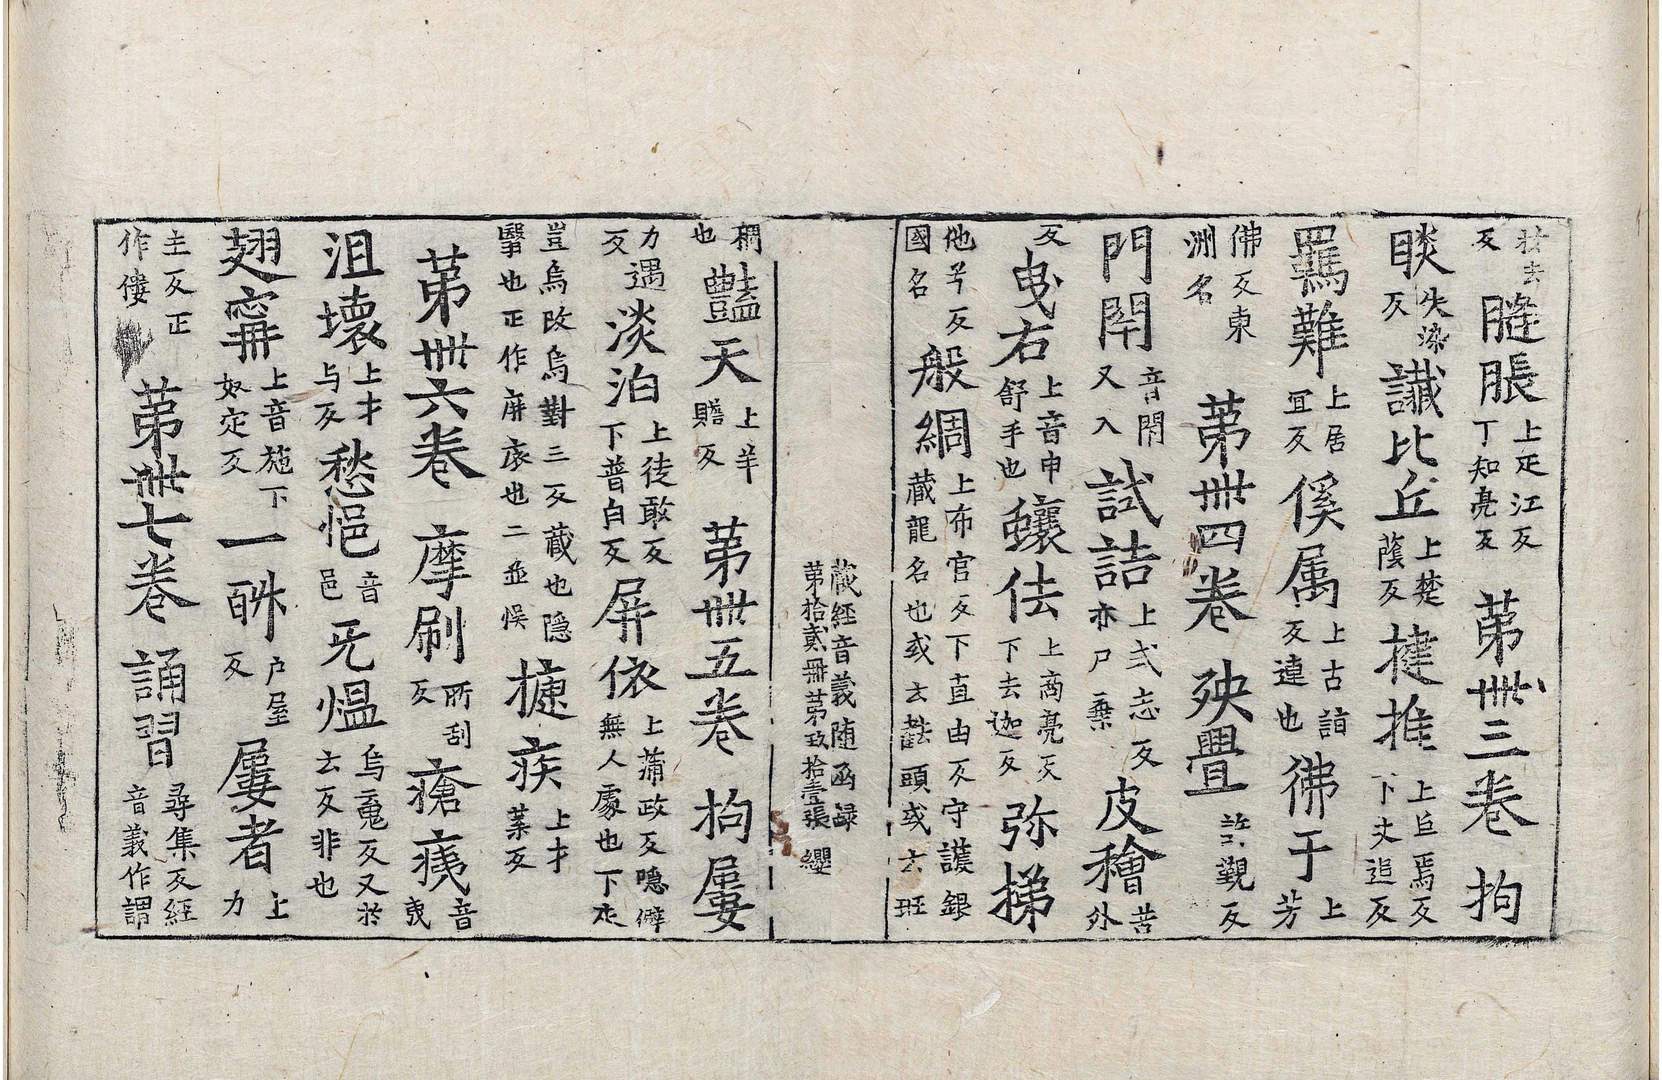 壯去反膖脹上疋江反丁知亮反第卌三卷拘
睒失染反讖比丘上楚蔭反揵推上巨焉反下丈追反
羈難上居宜反傒属上古詣反連也彿于上芳
佛反東洲名第卌四卷殎疊許覲反
門閇音閉又入試詰上式志反亦尸棄皮穭苦外
反曳右上音申舒手也蠰佉上商亮反下去迦反弥梯
他兮反國名般綢上布官反下直由反守護銀藏龍名也或云㲈頭或云班
藏經音義随函録第拾貳冊第玖拾壹張纓
稠也豔天上羊贍反第卌五卷拘屢
力遇反淡泊上徒敢反下普白反屏依上蒲政反隠僻無人處也下正
豈烏改烏對三反蔵也隠翳也正作庰扆也二並悮㨿疾上才葉反
第卌六卷摩刷所刮反瘡痍音夷
沮壞上才与反愁悒音邑旡煴烏冤反又於云反非也
翅寗上音施下奴定反一酧户屋反屢者上力
主反正作僂第卌七卷誦習尋集反經音義作謂